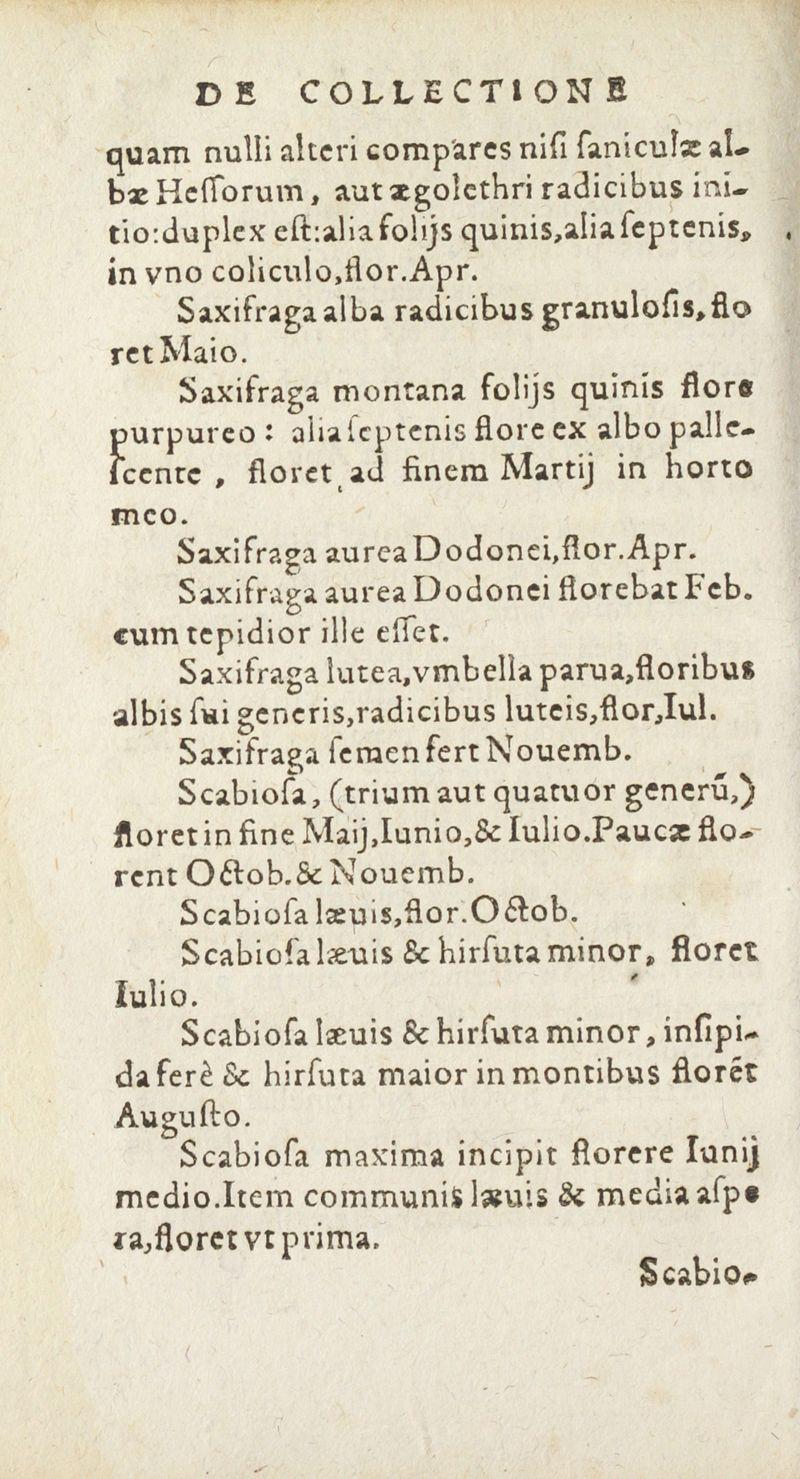 DE COLLECTIONE
quam nulli alteri compares nisi saniculæ al-
bæ Hessorum, aut ægolethri radicibus ini-
tio:duplex est:alia folijs quinis,alia septenis,
in vno coliculo,flor.Apr.
Saxifraga alba radicibus granulosis, flo
ret Maio.
Saxifraga montana folijs quinis flore
purpureo : alia septenis flore ex albo palle-
scente , floret ad finem Martij in horto
meo.
Saxifraga aurea Dodonei,flor.Apr.
Saxifraga aurea Dodonei florebat Feb.
cum tepidior ille esset.
Saxifraga lutea,vmbella parua,floribus
albis sui generis,radicibus luteis,flor,Iul.
Saxifraga semen fert Nouemb.
Scabiosa, (trium aut quatuor generū,)
floret in fine Maij,Iunio,& Iulio.Paucæ flo-
rent Octob.& Nouemb.
Scabiosa læuis,flor.Octob.
Scabiosa læuis & hirsuta minor, floret
Iulio.
Scabiosa læuis & hirsuta minor, insipi-
da ferè & hirsuta maior in montibus florēt
Augusto.
Scabiosa maxima incipit florere Iunij
medio.Item communis læuis & media aspe
ra,floret vt prima.
Scabio-